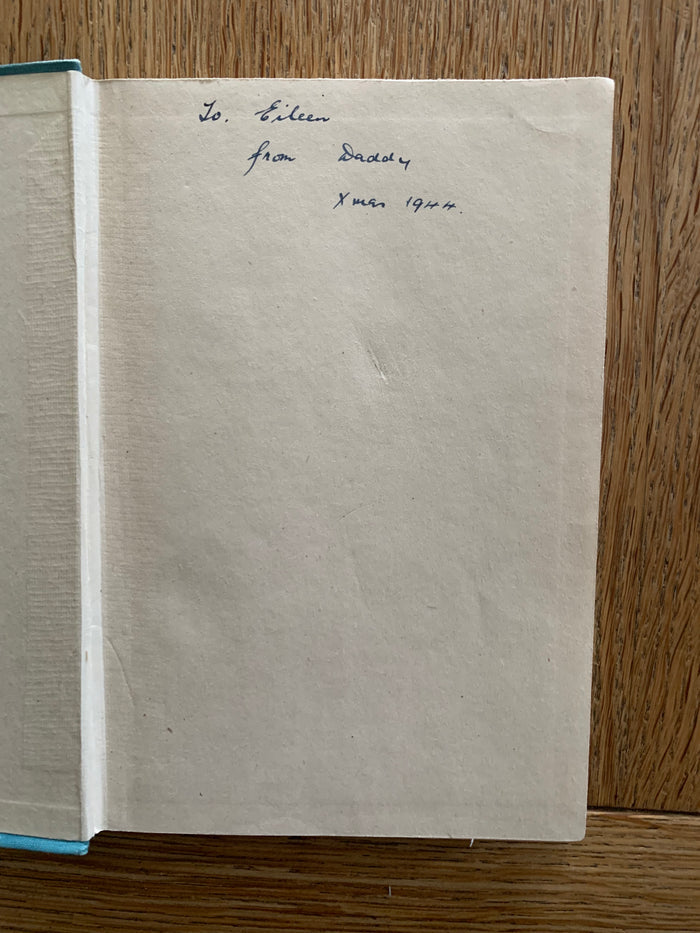 To. Eileen
from Daddy
Xmas 1944.